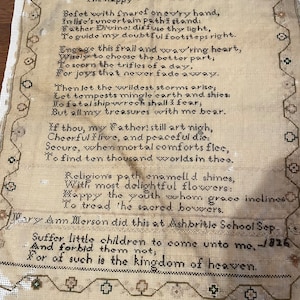 Beset with snares on ev'ry hand,
In life's uncertain path I stand:
Father Divine; diffuse thy light,
To guide my doubtful footsteps right.
Engage this frail and wav'ring heart,
Wisely to choose the better part,
To scorn the trifles of a day,
For joys that never fade away.
Then let the wildest storms arise,
Let tempests mingle earth and skies:
No fatal shipwreck shall I fear,
But all my treasures with me bear.
If thou, my Father! still art nigh,
Cheerful I live, and peaceful die.
Secure, when mortal comforts flee,
To find ten thousand worlds in thee.
Religion's path enamell'd shines,
With most delightful flowers:
Happy the youth whom grace inclines
To tread 'he sacred bowers.
Mary Ann Merson did this at Ashbrittle School Sep
Suffer little children to come unto me, 1826
And forbid them not,
For of such is the kingdom of heaven.